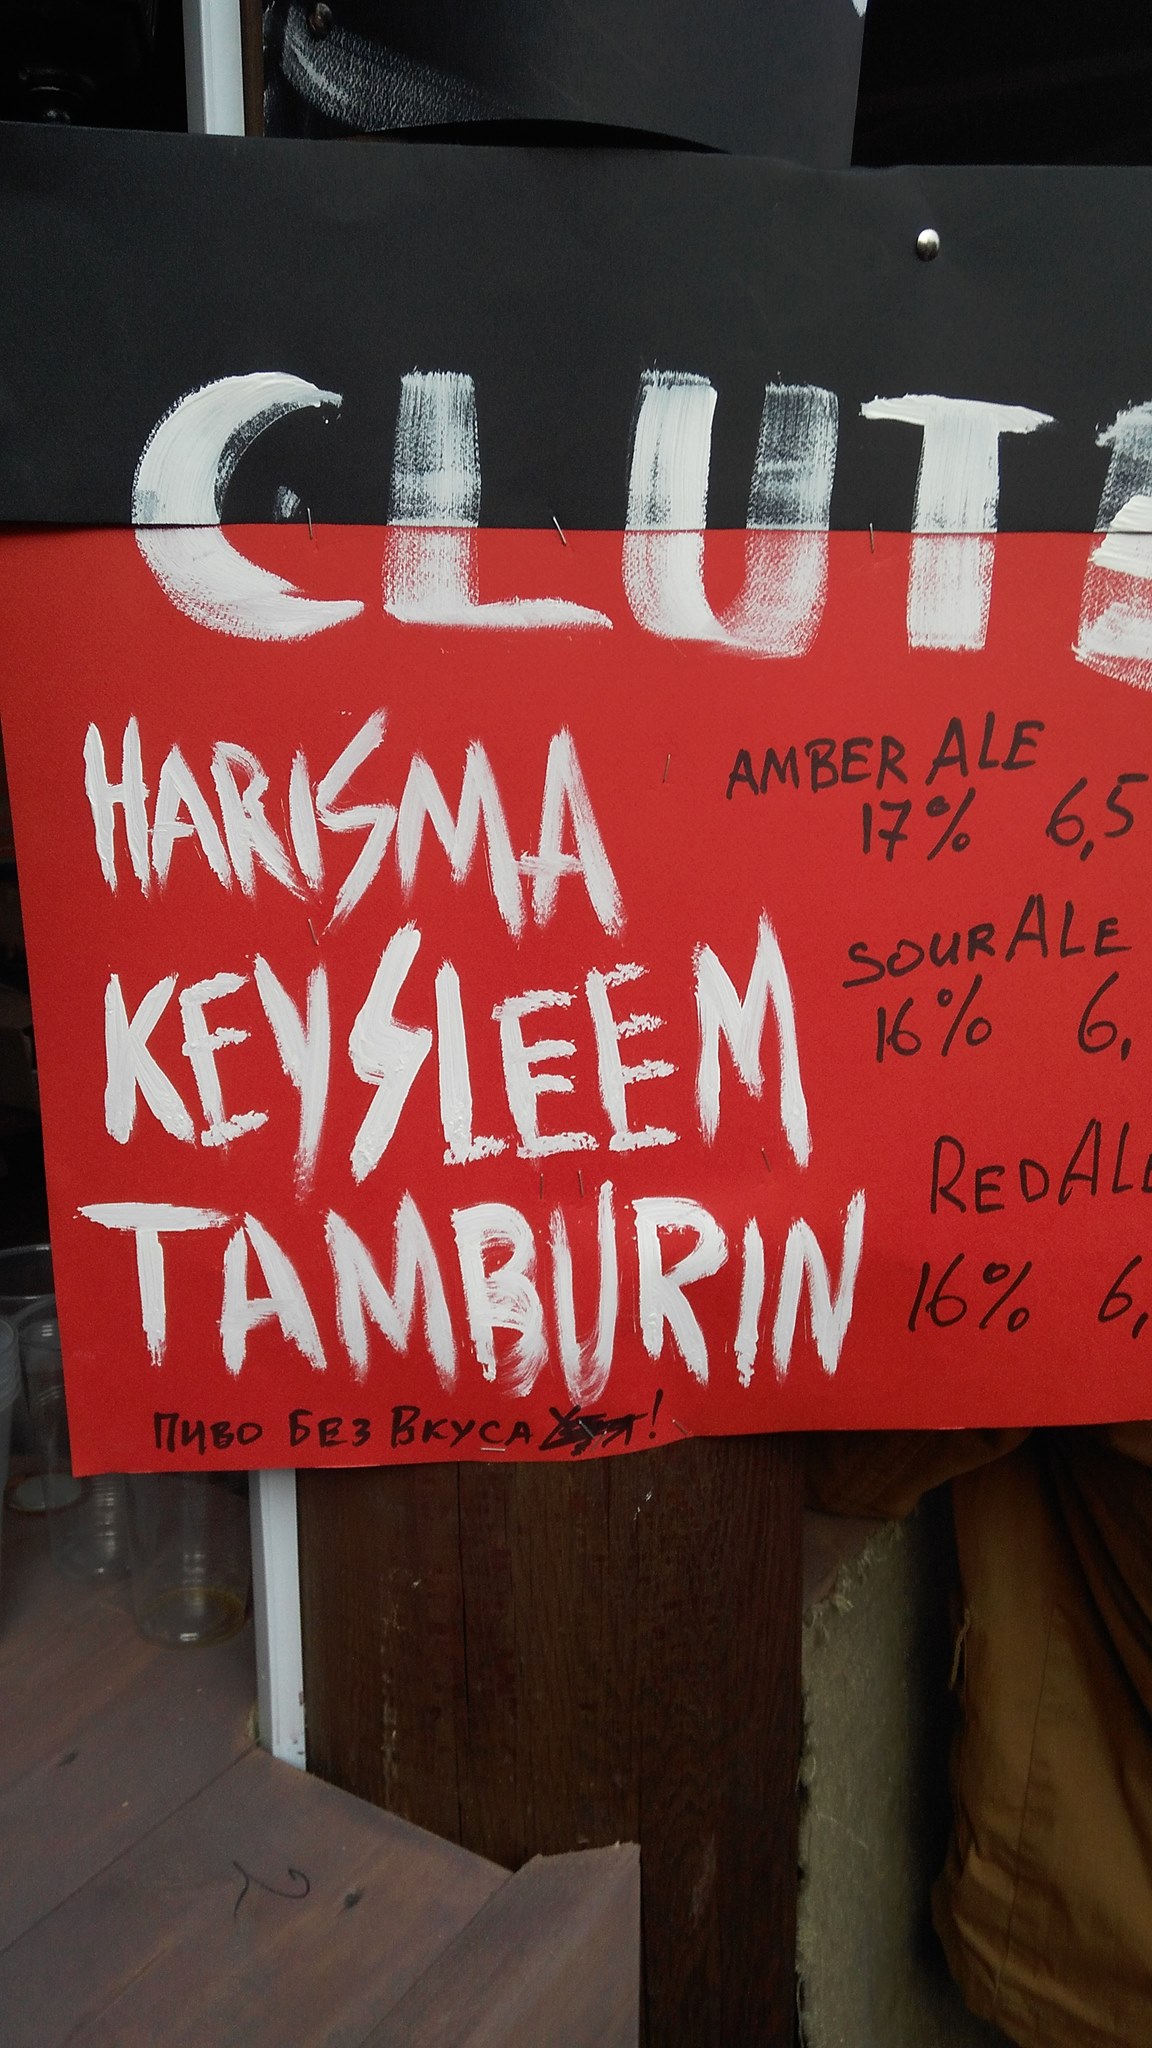 CLUT
HARISMA
AMBER ALE
17% 6,5
KEYSLEEM
SOUR ALE
16% 6,
TAMBURIN
RED ALE
16% 6,
ПИВО БЕЗ ВКУСА !